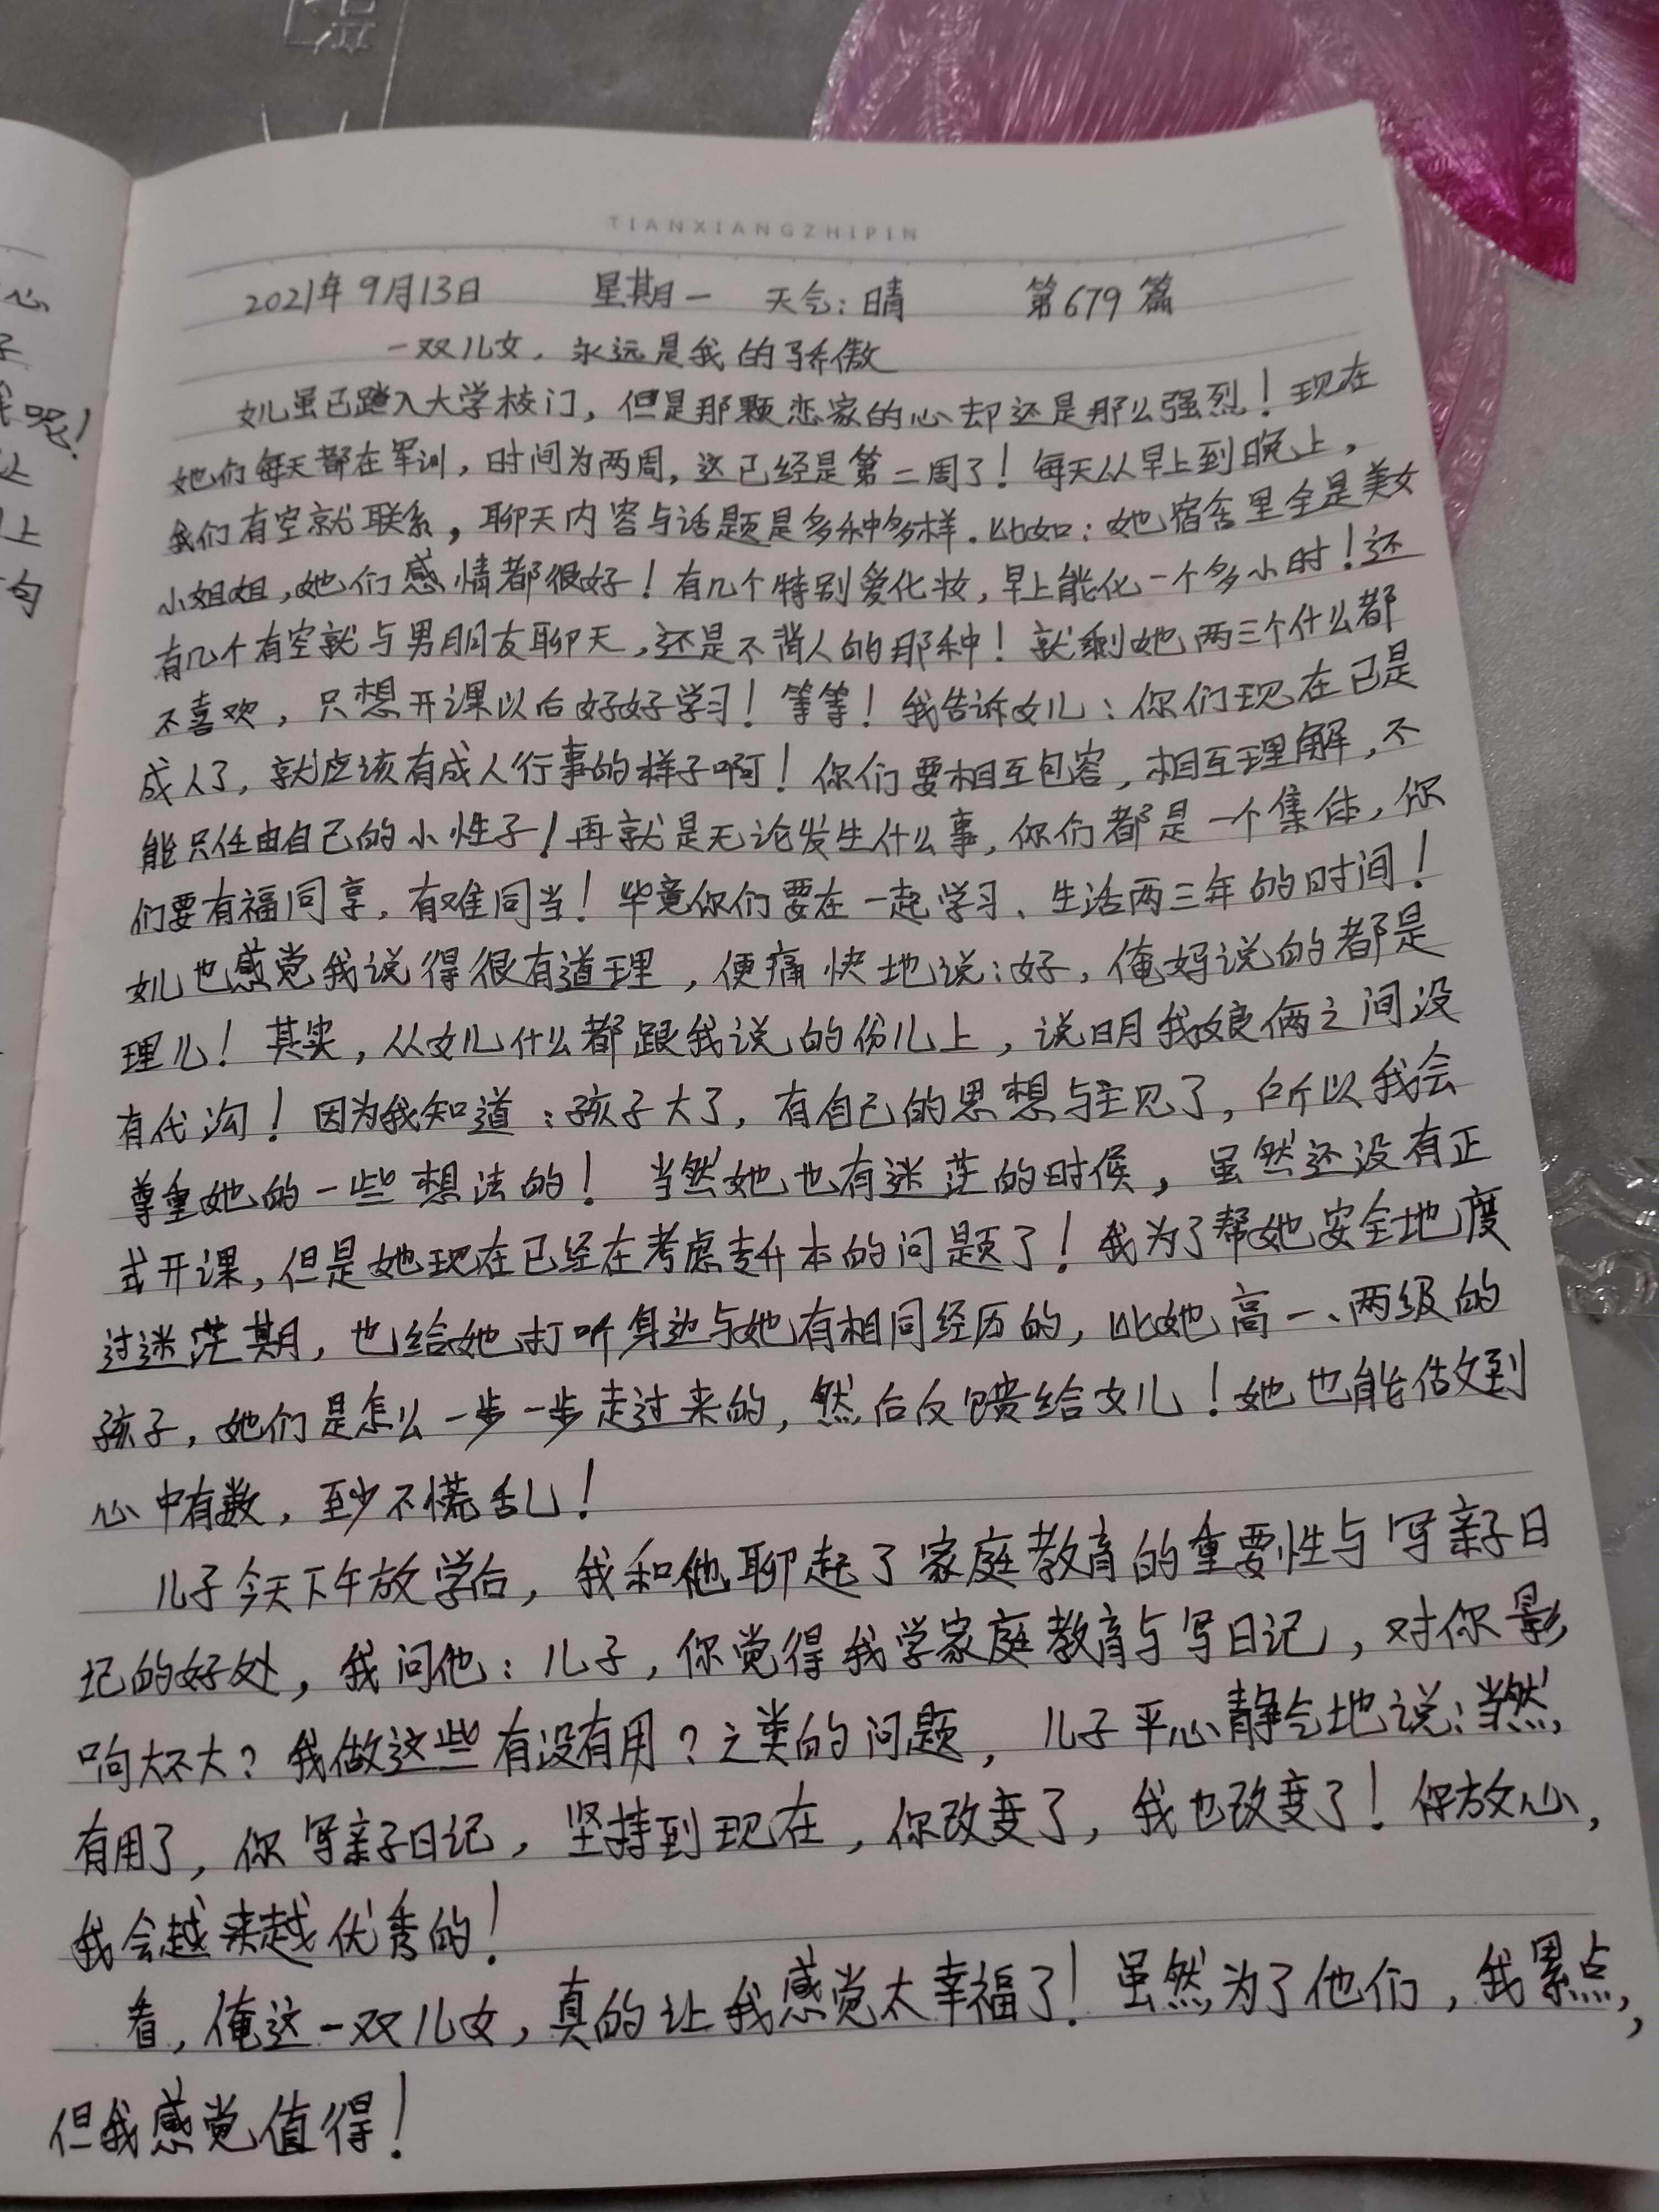 TIANXIANGZHIPIN
2021年9月13日 星期一 天气:晴 第679篇
一双儿女,永远是我的骄傲
女儿虽已踏入大学校门,但是那颗恋家的心却还是那么强烈!现在
她们每天都在军训,时间为两周,这已经是第二周了!每天从早上到晚上,
我们有空就联系,聊天内容与话题是多种多样。比如:她宿舍里全是美女
小姐姐,她们感情都很好!有几个特别爱化妆,早上能化一个多小时!还
有几个有空就与男朋友聊天,还是不背人的那种!就剩她两三个什么都
不喜欢,只想开课以后好好学习!等等!我告诉女儿:你们现在已是
成人了,就应该有成人行事的样子啊!你们要相互包容,相互理解,不
能只任由自己的小性子!再就是无论发生什么事,你们都是一个集体,你
们要有福同享,有难同当!毕竟你们要在一起学习、生活两三年的时间!
女儿也感觉我说得很有道理,便痛快地说:好,俺妈说的都是
理儿!其实,从女儿什么都跟我说的份儿上,说明我娘俩之间没
有代沟!因为我知道:孩子大了,有自己的思想与主见了,所以我会
尊重她的一些想法的!当然她也有迷茫的时候,虽然还没有正
式开课,但是她现在已经在考虑专升本的问题了!我为了帮她安全地度
过迷茫期,也给她打听身边与她有相同经历的,比她高一、两级的
孩子,她们是怎么一步一步走过来的,然后反馈给女儿!她也能做到
心中有数,至少不慌乱!
儿子今天下午放学后,我和他聊起了家庭教育的重要性与写亲子日
记的好处,我问他:儿子,你觉得我学家庭教育与写日记,对你影
响大不大?我做这些有没有用?之类的问题,儿子平心静气地说:当然
有用了,你写亲子日记,坚持到现在,你改变了,我也改变了!你放心,
我会越来越优秀的!
看,俺这一双儿女,真的让我感觉太幸福了!虽然为了他们,我累点,
但我感觉值得!